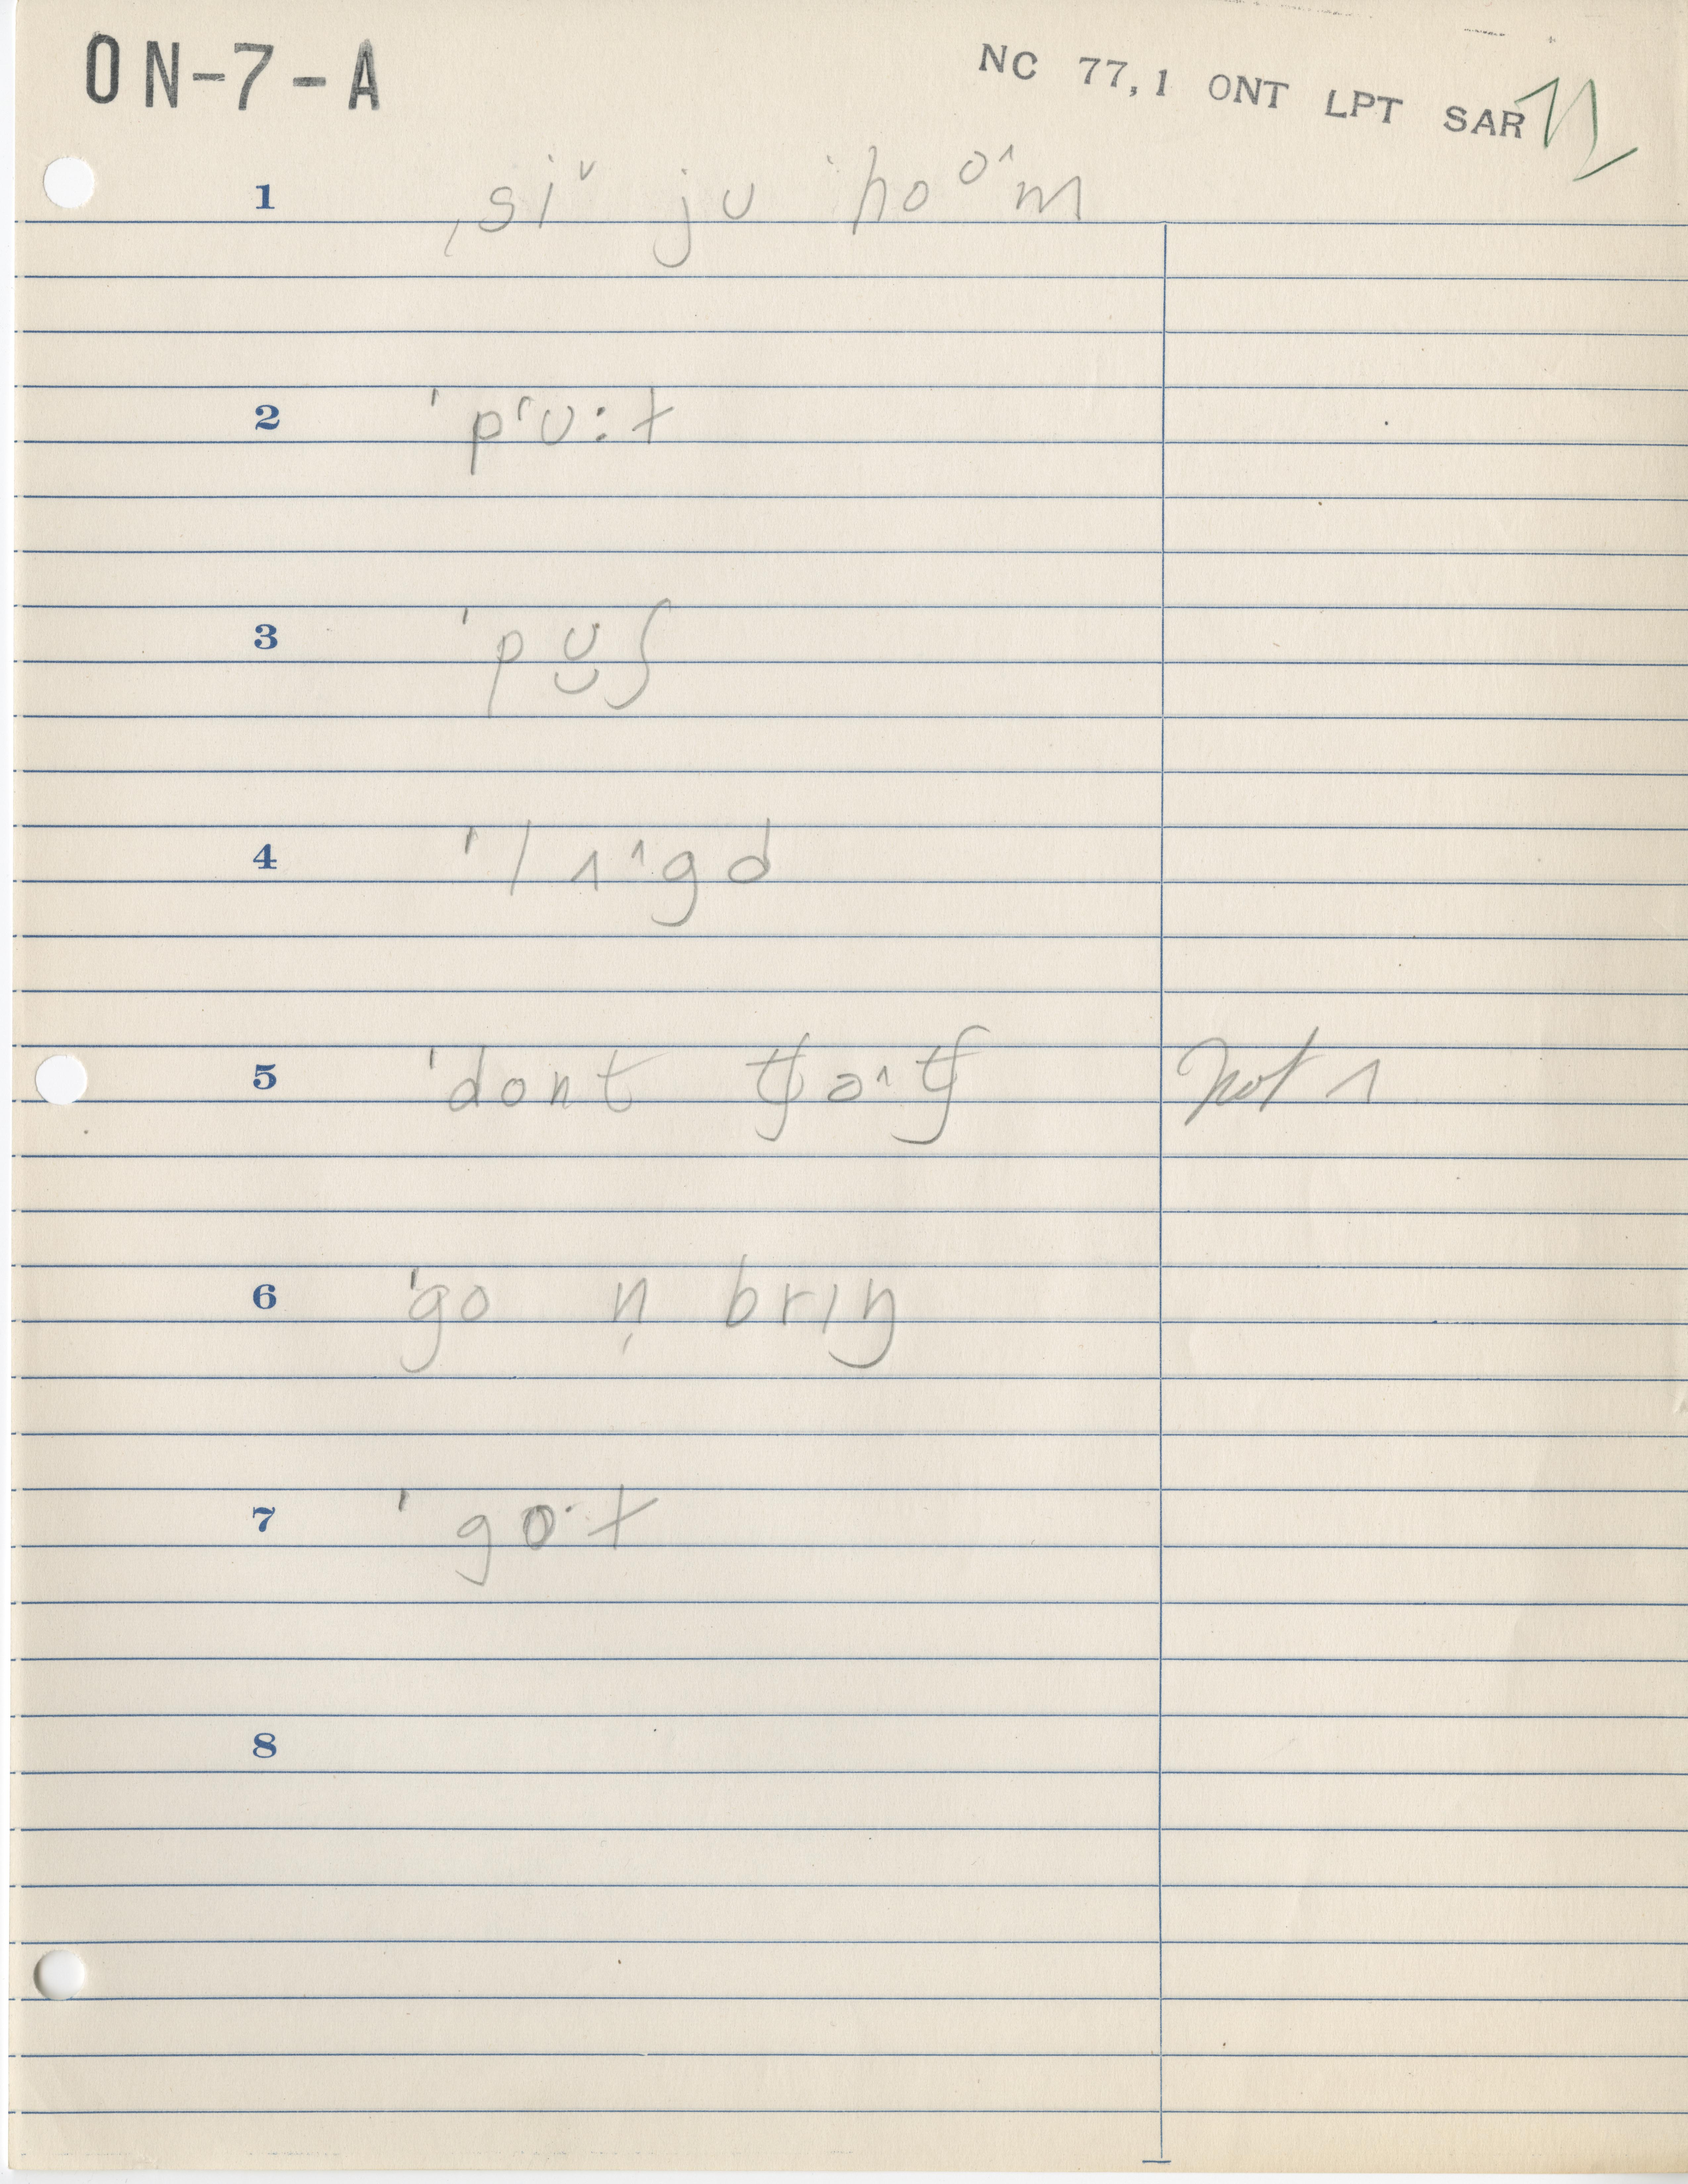 ON-7-A
NC 77,1 ONT LPT SAR
1 ˌsiᵛ ju ˈhoᵒ^m
2 ˈpʻʊ:t
3 ˈpʊ̮ʃ
4 ˈlʌ^gd
5 ˈdont tʃə^tʃ not ʌ
6 ˈgo n̩ brɪŋ
7 ˈgo·t
8